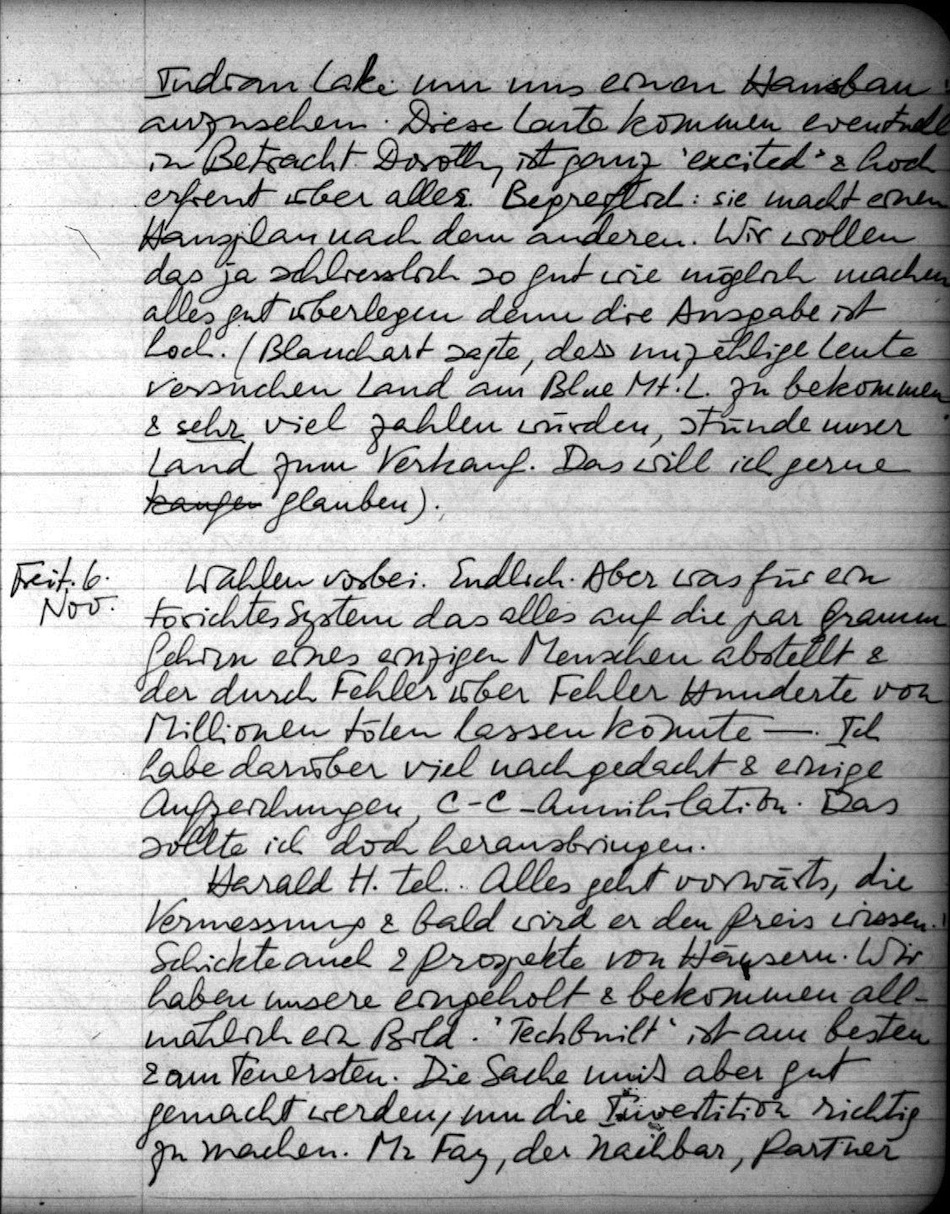 Indian Lake um uns einen Hausbau
anzusehen. Diese Leute kommen eventuell
in Betracht Dorothy ist ganz 'excited' & hoch
erfreut über alles. Begreiflich: sie macht einen
Hausplan nach dem anderen. Wir wollen
das ja schliesslich so gut wie möglich machen
alles gut überlegen denn die Ausgabe ist
hoch. (Blanchart sagte, dass unzählige Leute
versuchen Land am Blue Mt. L. zu bekommen
& sehr viel zahlen würden, stünde unser
Land zum Verkauf. Das will ich gerne
glauben).
Freit. 6. Nov.
Wahlen vorbei. Endlich. Aber was für ein
törichtes System das alles auf die par Gramm
Gehirn eines einzigen Menschen abstellt &
der durch Fehler über Fehler Hunderte von
Millionen töten lassen könnte —. Ich
habe darüber viel nachgedacht & einige
Aufzeichnungen, C-C-Annihilation. Das
sollte ich doch herausbringen.
Harald H. tel.. Alles geht vorwärts, die
Vermessung & bald wird er den Preis wissen.
Schickte auch 2 Prospekte von Häusern. Wir
haben unsere eingeholt & bekommen all-
mählich ein Bild. 'Techbuilt' ist am besten
& am Teuersten. Die Sache muss aber gut
gemacht werden, um die Investition richtig
zu machen. Mr Fay, der Nachbar, Partner